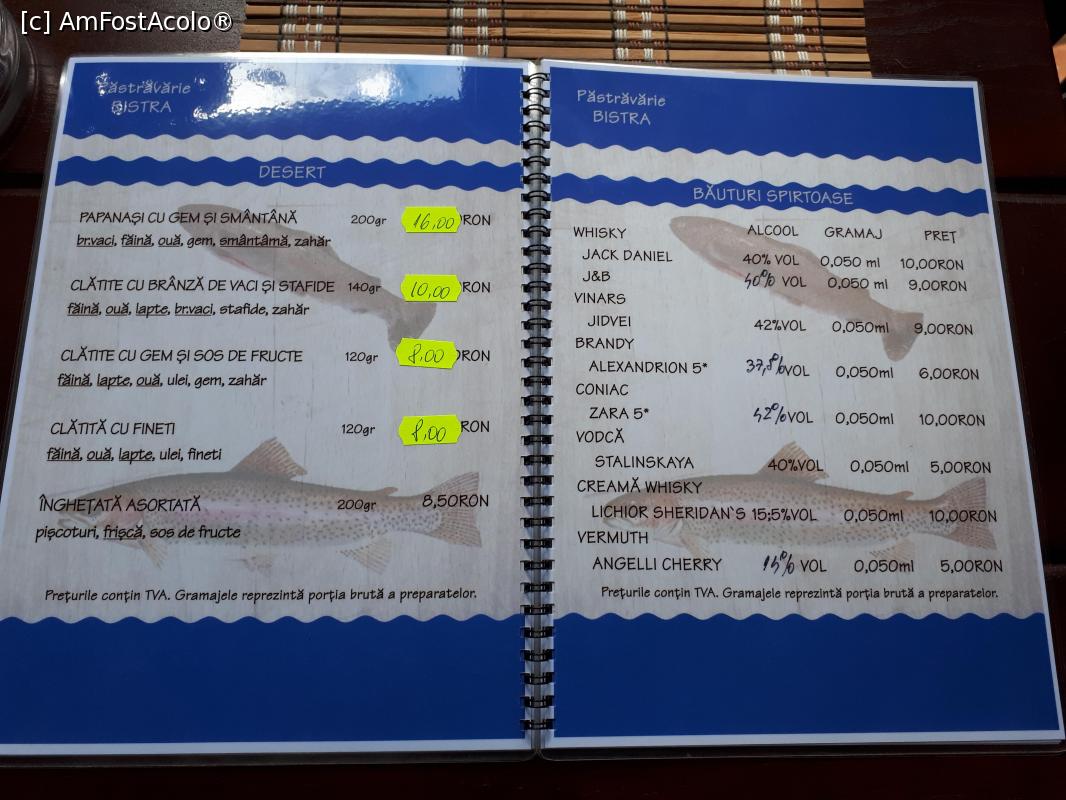 [c] AmFostAcolo®
Păstrăvărie
BISTRA
DESERT
PAPANAȘI CU GEM ȘI SMÂNTÂNĂ 200gr 16,00 RON
br.vaci, făină, ouă, gem, smântâmă, zahăr
CLĂTITE CU BRÂNZĂ DE VACI ȘI STAFIDE 140gr 10,00 RON
făină, ouă, lapte, br.vaci, stafide, zahăr
CLĂTITE CU GEM ȘI SOS DE FRUCTE 120gr 8,00 RON
făină, lapte, ouă, ulei, gem, zahăr
CLĂTITĂ CU FINETI 120gr 8,00 RON
făină, ouă, lapte, ulei, fineti
ÎNGHEȚATĂ ASORTATĂ 200gr 8,50RON
pișcoturi, frișcă, sos de fructe
Prețurile conțin TVA. Gramajele reprezintă porția brută a preparatelor.
Păstrăvărie
BISTRA
BĂUTURI SPIRTOASE
WHISKY ALCOOL GRAMAJ PREȚ
JACK DANIEL 40% VOL 0,050 ml 10,00RON
J&B 40% VOL 0,050 ml 9,00RON
VINARS
JIDVEI 42%VOL 0,050ml 9,00RON
BRANDY
ALEXANDRION 5* 37,5%VOL 0,050ml 6,00RON
CONIAC
ZARA 5* 42%VOL 0,050ml 10,00RON
VODCĂ
STALINSKAYA 40%VOL 0,050ml 5,00RON
CREAMĂ WHISKY
LICHIOR SHERIDAN`S 15;5%VOL 0,050ml 10,00RON
VERMUTH
ANGELLI CHERRY % VOL 0,050ml 5,00RON
Prețurile conțin TVA. Gramajele reprezintă porția brută a preparatelor.